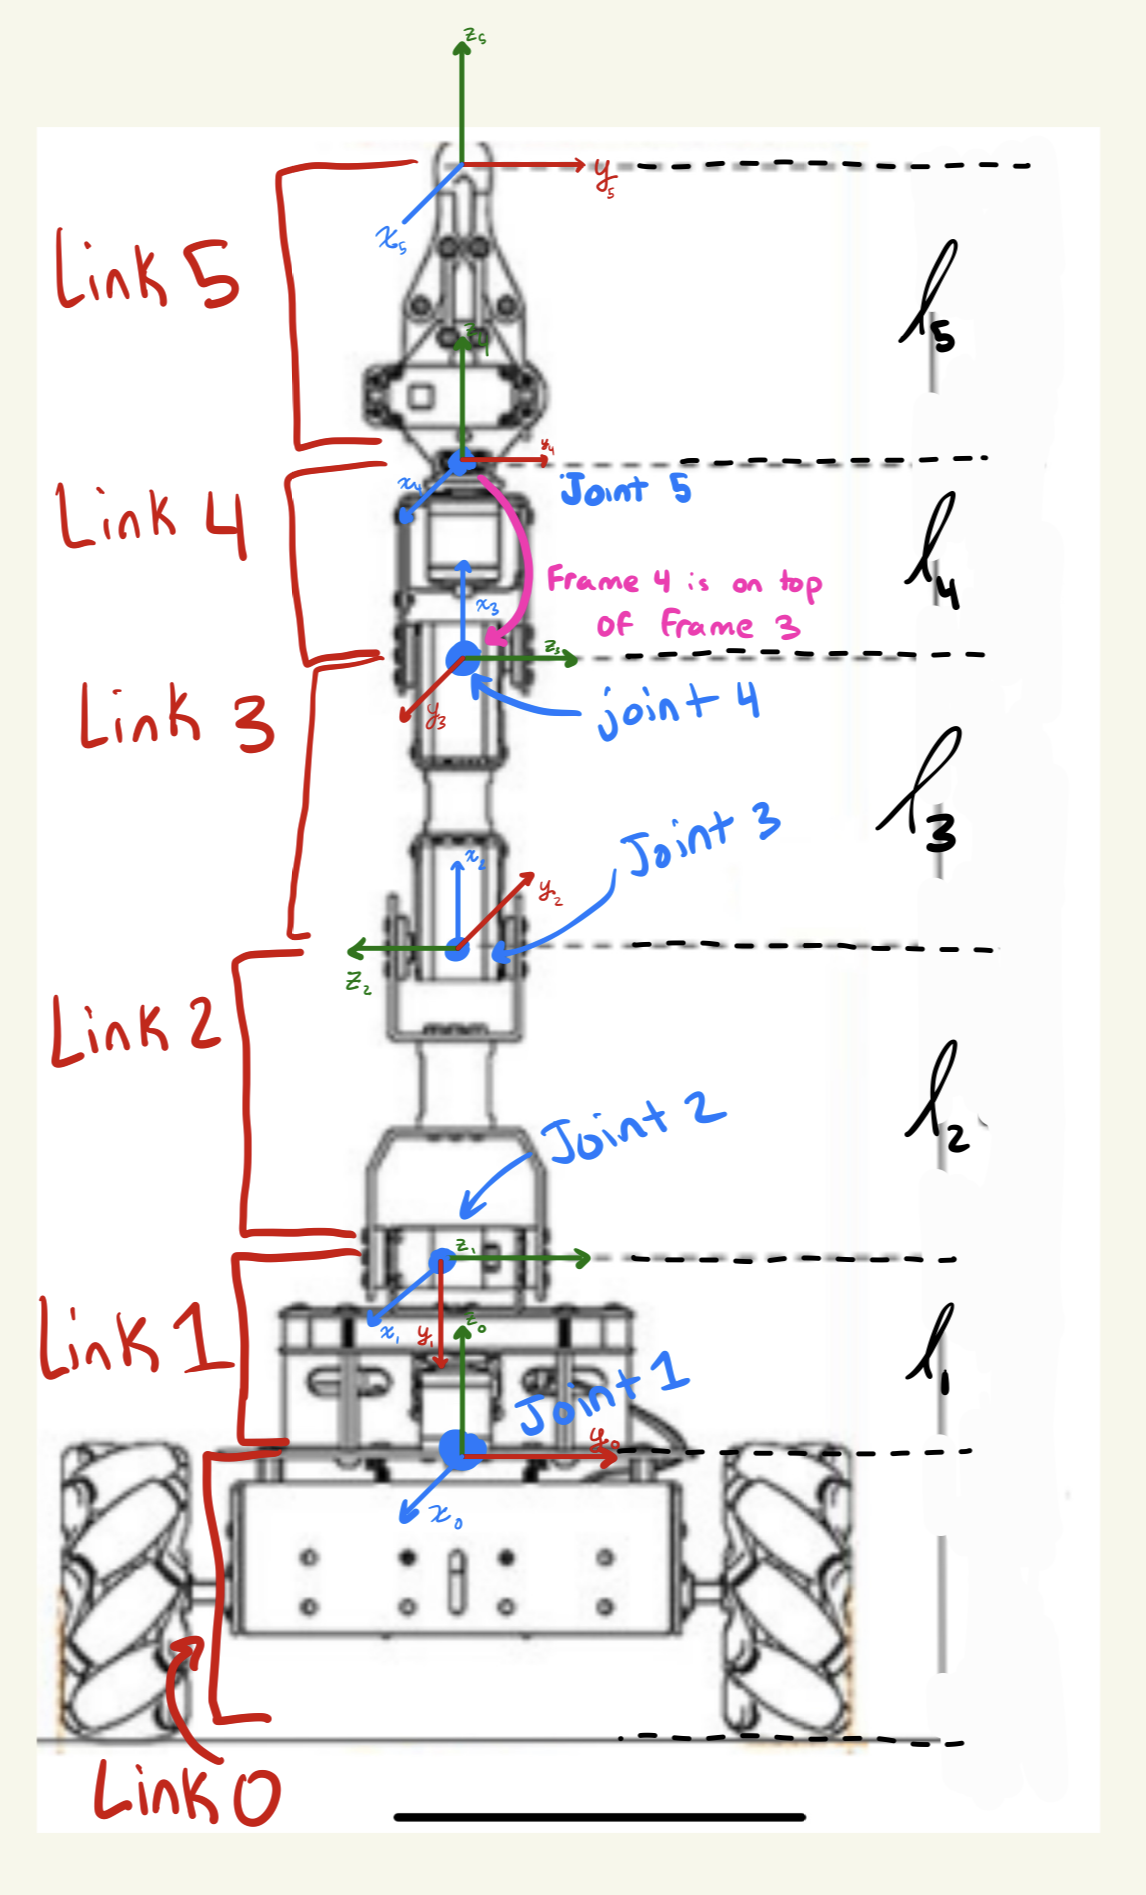 z₅
y₅
x₅
Link 5
l₅
z₄
y₄
x₄
Joint 5
Link 4
l₄
Frame 4 is on top
of Frame 3
x₃
z₃
y₃
joint 4
Link 3
l₃
Joint 3
x₂
y₂
z₂
Link 2
l₂
Joint 2
z₁
x₁
y₁
Link 1
l₁
z₀
Joint 1
y₀
x₀
Link 0